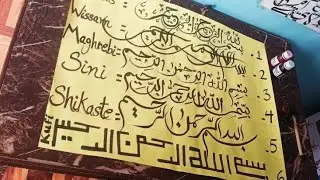 Wissam: بسم الله الرحمن الرحيم .1
Maghrebi: بسم الله الرحمن الرحيم .2
Sini: بسم الله الرحمن الرحيم .3
Shikaste: بسم الله الرحمن الرحيم .5
Kufi بسم الله الرحمن الرحيم